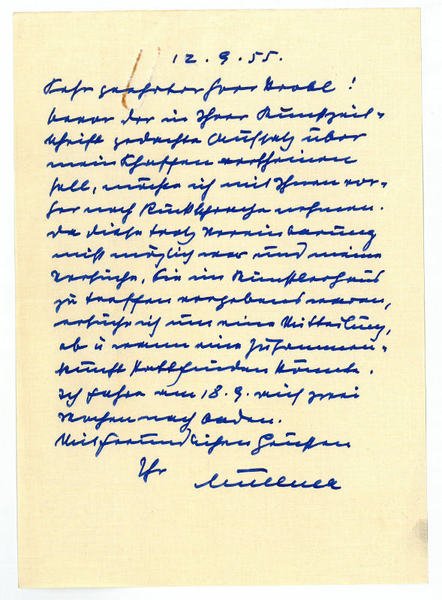 12.9.55.
Sehr geehrter Herr Strobl!
bevor der in Ihrer Kunstzeit-
schrift gedachte Aufsatz über
mein Schaffen erscheinen
soll, möchte ich mit Ihnen vor-
her noch Rücksprache nehmen.
Da diese trotz Vereinbarung
nicht möglich war und meine
Versuche, Sie im Künstlerhaus
zu treffen vergebens waren,
ersuche ich um eine Mitteilung,
ob u wann eine Zusammen-
kunft stattfinden könnte.
Ich fahre am 18.9. auf zwei
Wochen nach Baden.
Mit freundlichen Grüssen
Ihr